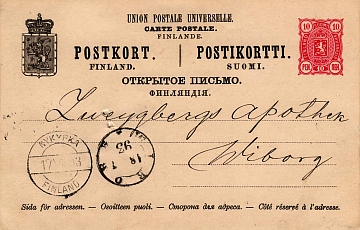 UNION POSTALE UNIVERSELLE.
CARTE POSTALE.
FINLANDE.
POSTKORT. POSTIKORTTI.
FINLAND. SUOMI.
ОТКРЫТОЕ ПИСЬМО.
ФИНЛЯНДІЯ.
10 10
10
PEN
Zweygbergs Apothek
Wiborg
NYKYPKA
FINLAND
18 1
93
Sida för adressen. - Osoitteen puoli. - Сторона для адреса. - Côté réservé à l'adresse.